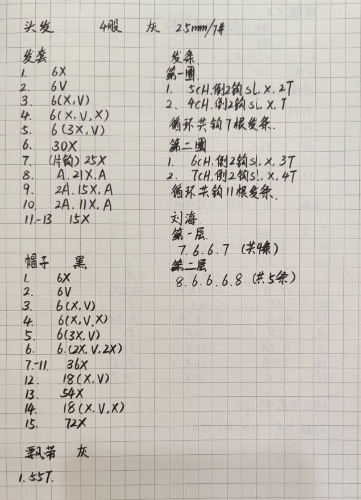 头发 4股 灰 2.5mm/7#
发套
1. 6X
2. 6V
3. 6(X,V)
4. 6(X,V,X)
5. 6(3X,V)
6. 30X
7. (片钩)25X
8. A.21X.A
9. 2A.15X.A
10. 2A.11X.A
11-13 15X
帽子 黑
1. 6X
2. 6V
3. 6(X,V)
4. 6(X,V,X)
5. 6(3X,V)
6. 6.(2X,V,2X)
7.-11. 36X
12. 18(X,V)
13. 54X
14. 18(X,V,X)
15. 72X
飘带 灰
1.55T.
发条
第一圈
1. 5CH.倒2钩sl.X.2T
2. 4CH.倒2钩sl.X.T
循环共钩7根发条.
第二圈
1. 6CH.倒2钩sl.X.3T
2. 7CH.倒2钩sl.X.4T
循环共钩11根发条.
刘海
第一层
7.6.6.7 (共4条)
第二层
8.6.6.6.8 (共5条)